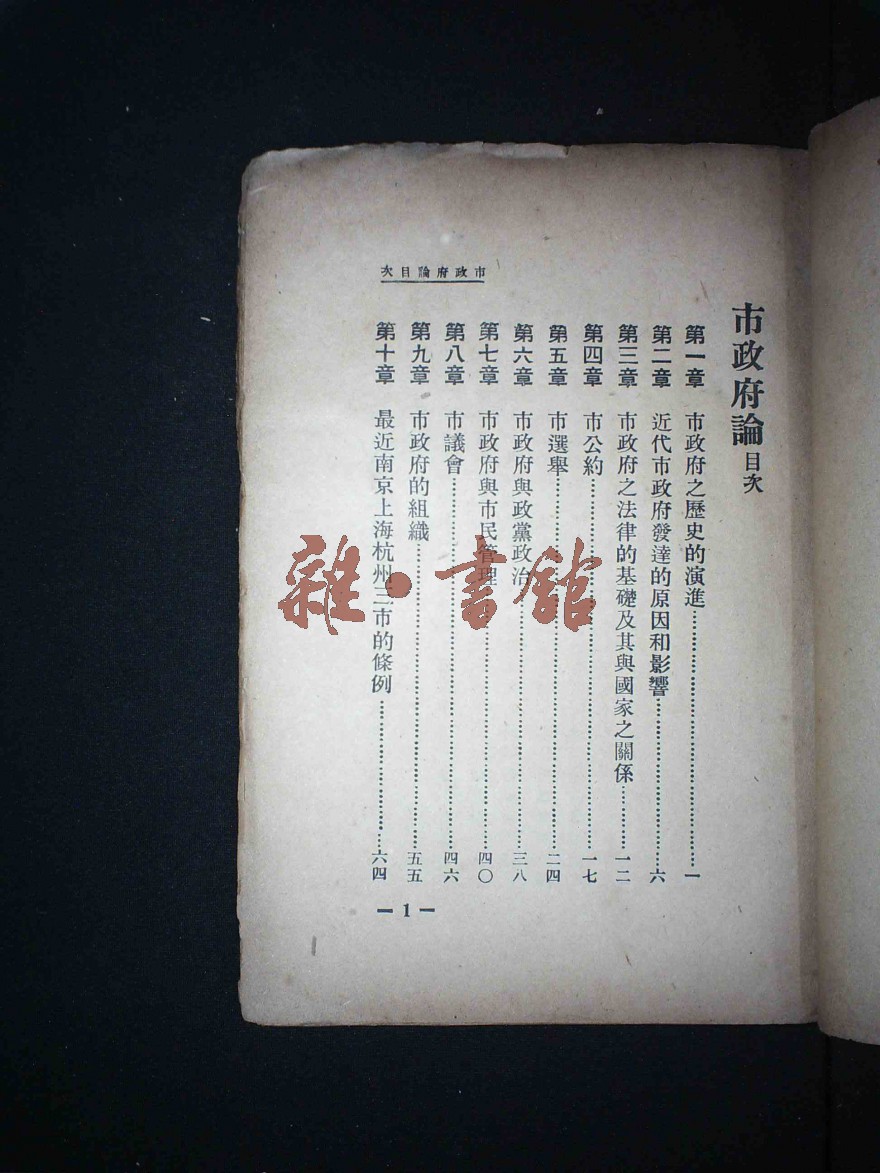 市政府論目次
市政府論 目次
第一章 市政府之歷史的演進……一
第二章 近代市政府發達的原因和影響……六
第三章 市政府之法律的基礎及其與國家之關係……一二
第四章 市公約……一七
第五章 市選舉……二四
第六章 市政府與政黨政治……三八
第七章 市政府與市民管理……四〇
第八章 市議會……四六
第九章 市政府的組織……五五
第十章 最近南京上海杭州三市的條例……六四
— 1 —
雜·書館